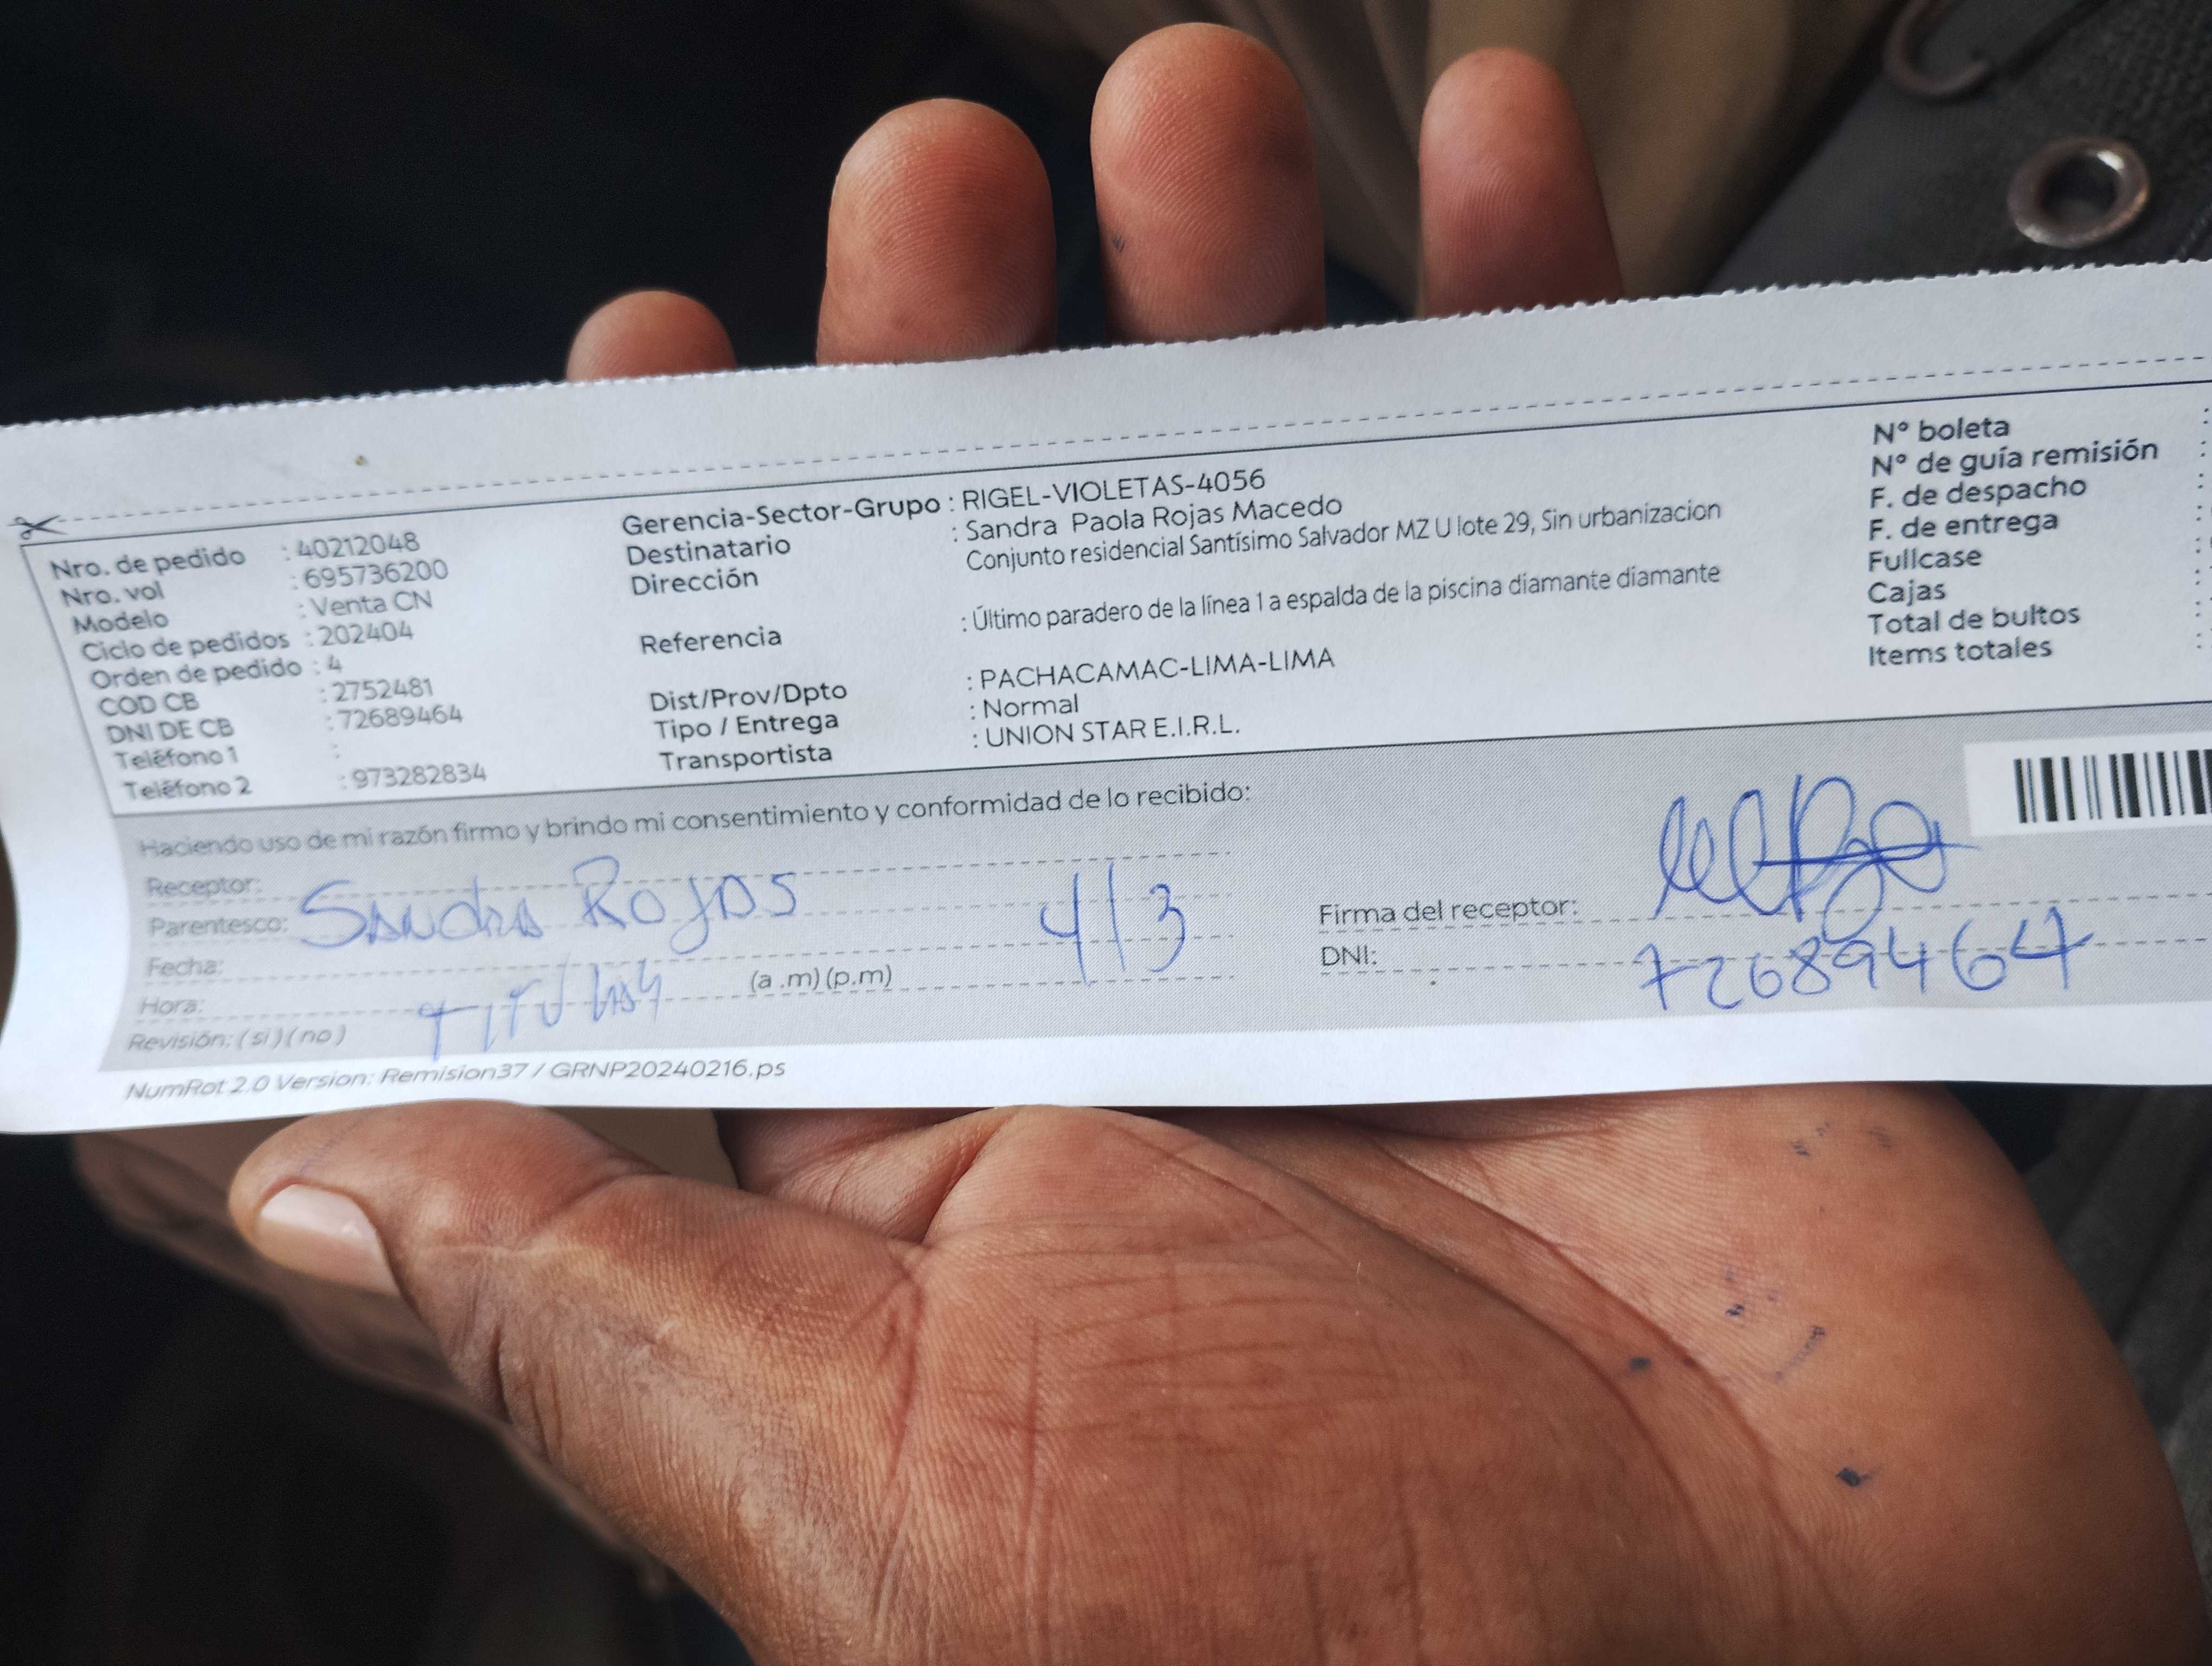 Nro. de pedido : 40212048
Nro. vol : 695736200
Modelo : Venta CN
Ciclo de pedidos : 202404
Orden de pedido : 4
COD CB : 2752481
DNI DE CB : 72689464
Teléfono 1 :
Teléfono 2 : 973282834
Gerencia-Sector-Grupo : RIGEL-VIOLETAS-4056
Destinatario : Sandra Paola Rojas Macedo
Dirección Conjunto residencial Santísimo Salvador MZ U lote 29, Sin urbanizacion
Referencia : Último paradero de la línea 1 a espalda de la piscina diamante diamante
Dist/Prov/Dpto : PACHACAMAC-LIMA-LIMA
Tipo / Entrega : Normal
Transportista : UNION STAR E.I.R.L.
N° boleta :
N° de guía remisión :
F. de despacho :
F. de entrega :
Fullcase :
Cajas :
Total de bultos :
Items totales :
Haciendo uso de mi razón firmo y brindo mi consentimiento y conformidad de lo recibido:
Receptor:
Parentesco: Sandra Rojas 4/3
Fecha:
Hora: (a .m) (p.m)
Revisión: ( si ) ( no )
Firma del receptor:
DNI: 72689464
NumRot 2.0 Version: Remision37 / GRNP20240216.ps